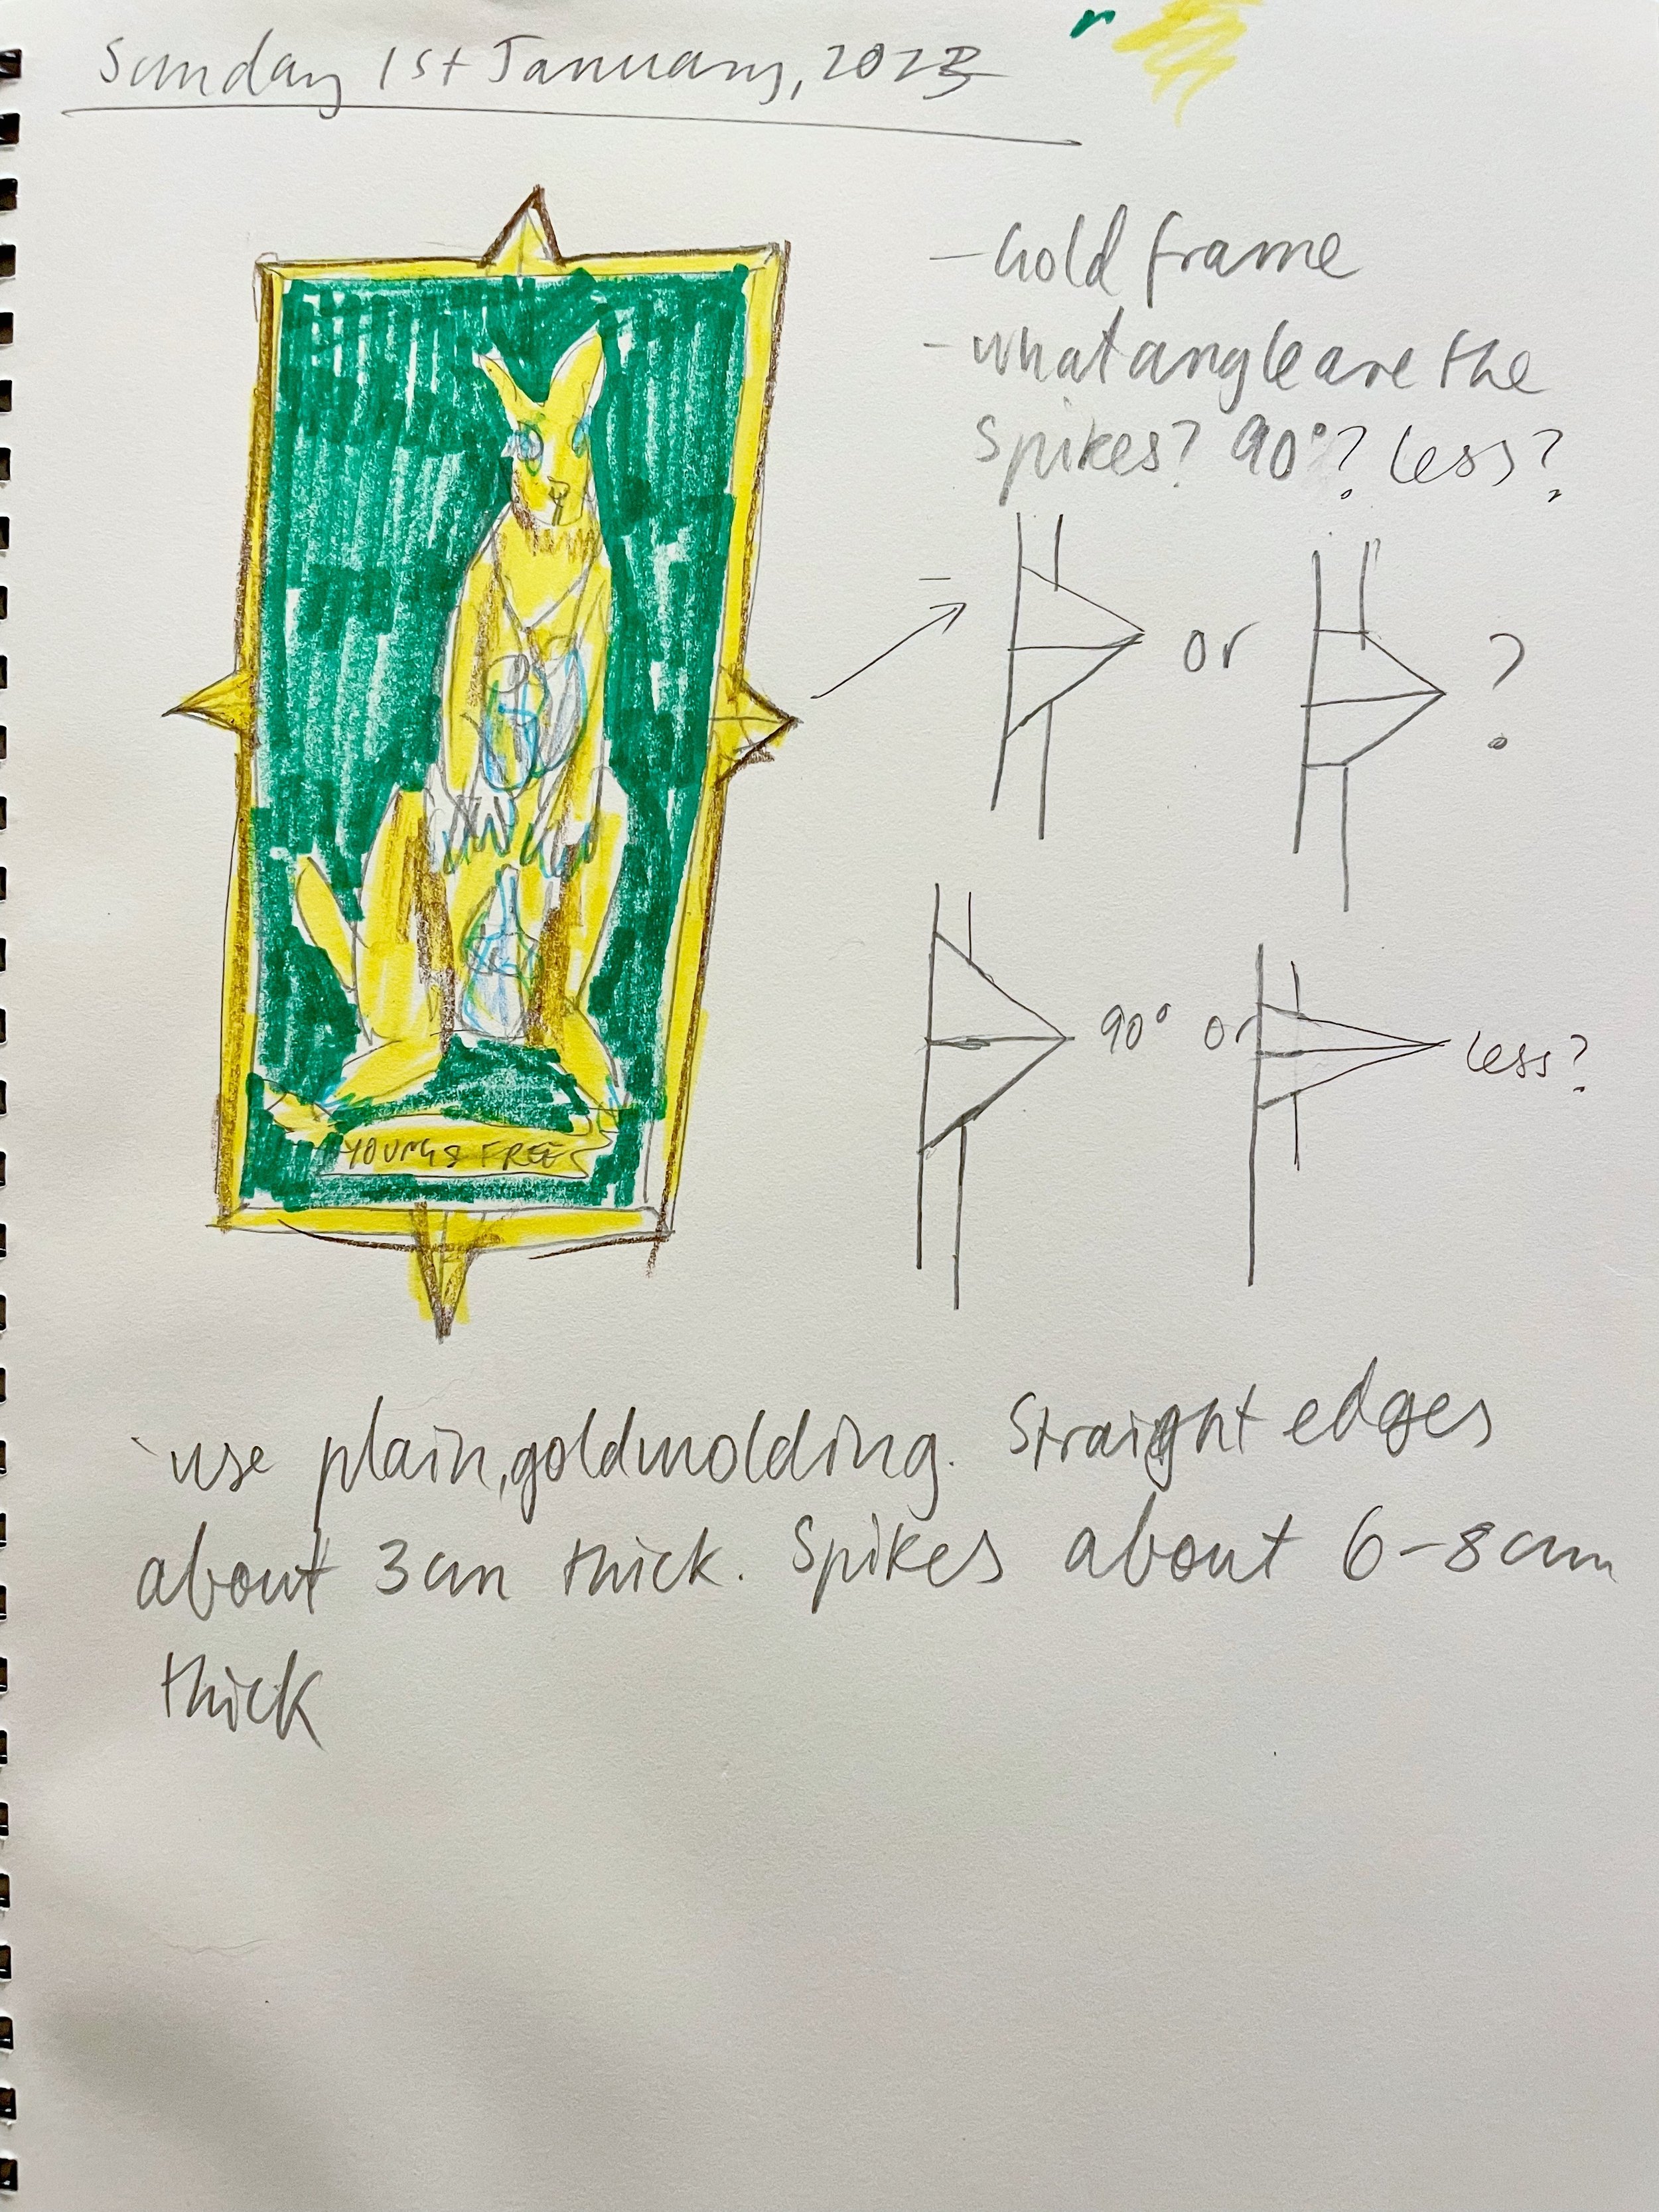 Sunday 1st January, 2023
- Gold frame
- what angle are the
spikes? 90°? less?
or ?
90° or less?
YOUNG & FREE
use plain, gold molding. Straight edges
about 3cm thick. Spikes about 6-8cm
thick